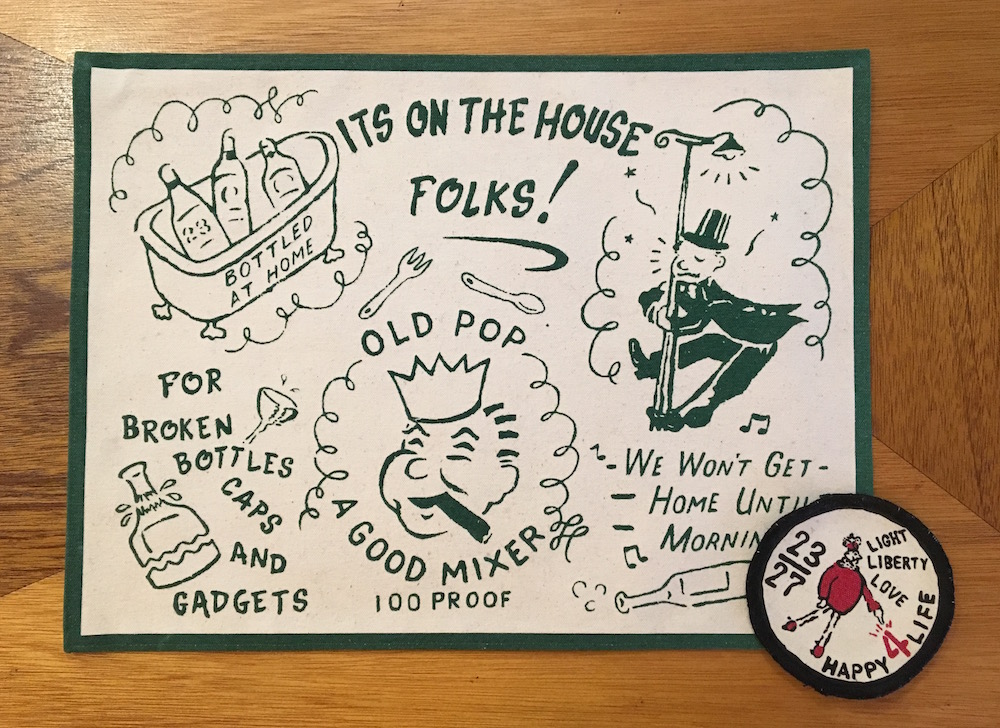 ITS ON THE HOUSE
FOLKS!
23
C
C
BOTTLED
AT HOME
OLD POP
A GOOD MIXER
100 PROOF
FOR
BROKEN
BOTTLES
CAPS
AND
GADGETS
-WE WON'T GET-
HOME UNTIL
MORNIN
23
27
LIGHT
LIBERTY
LOVE
HAPPY 4 LIFE